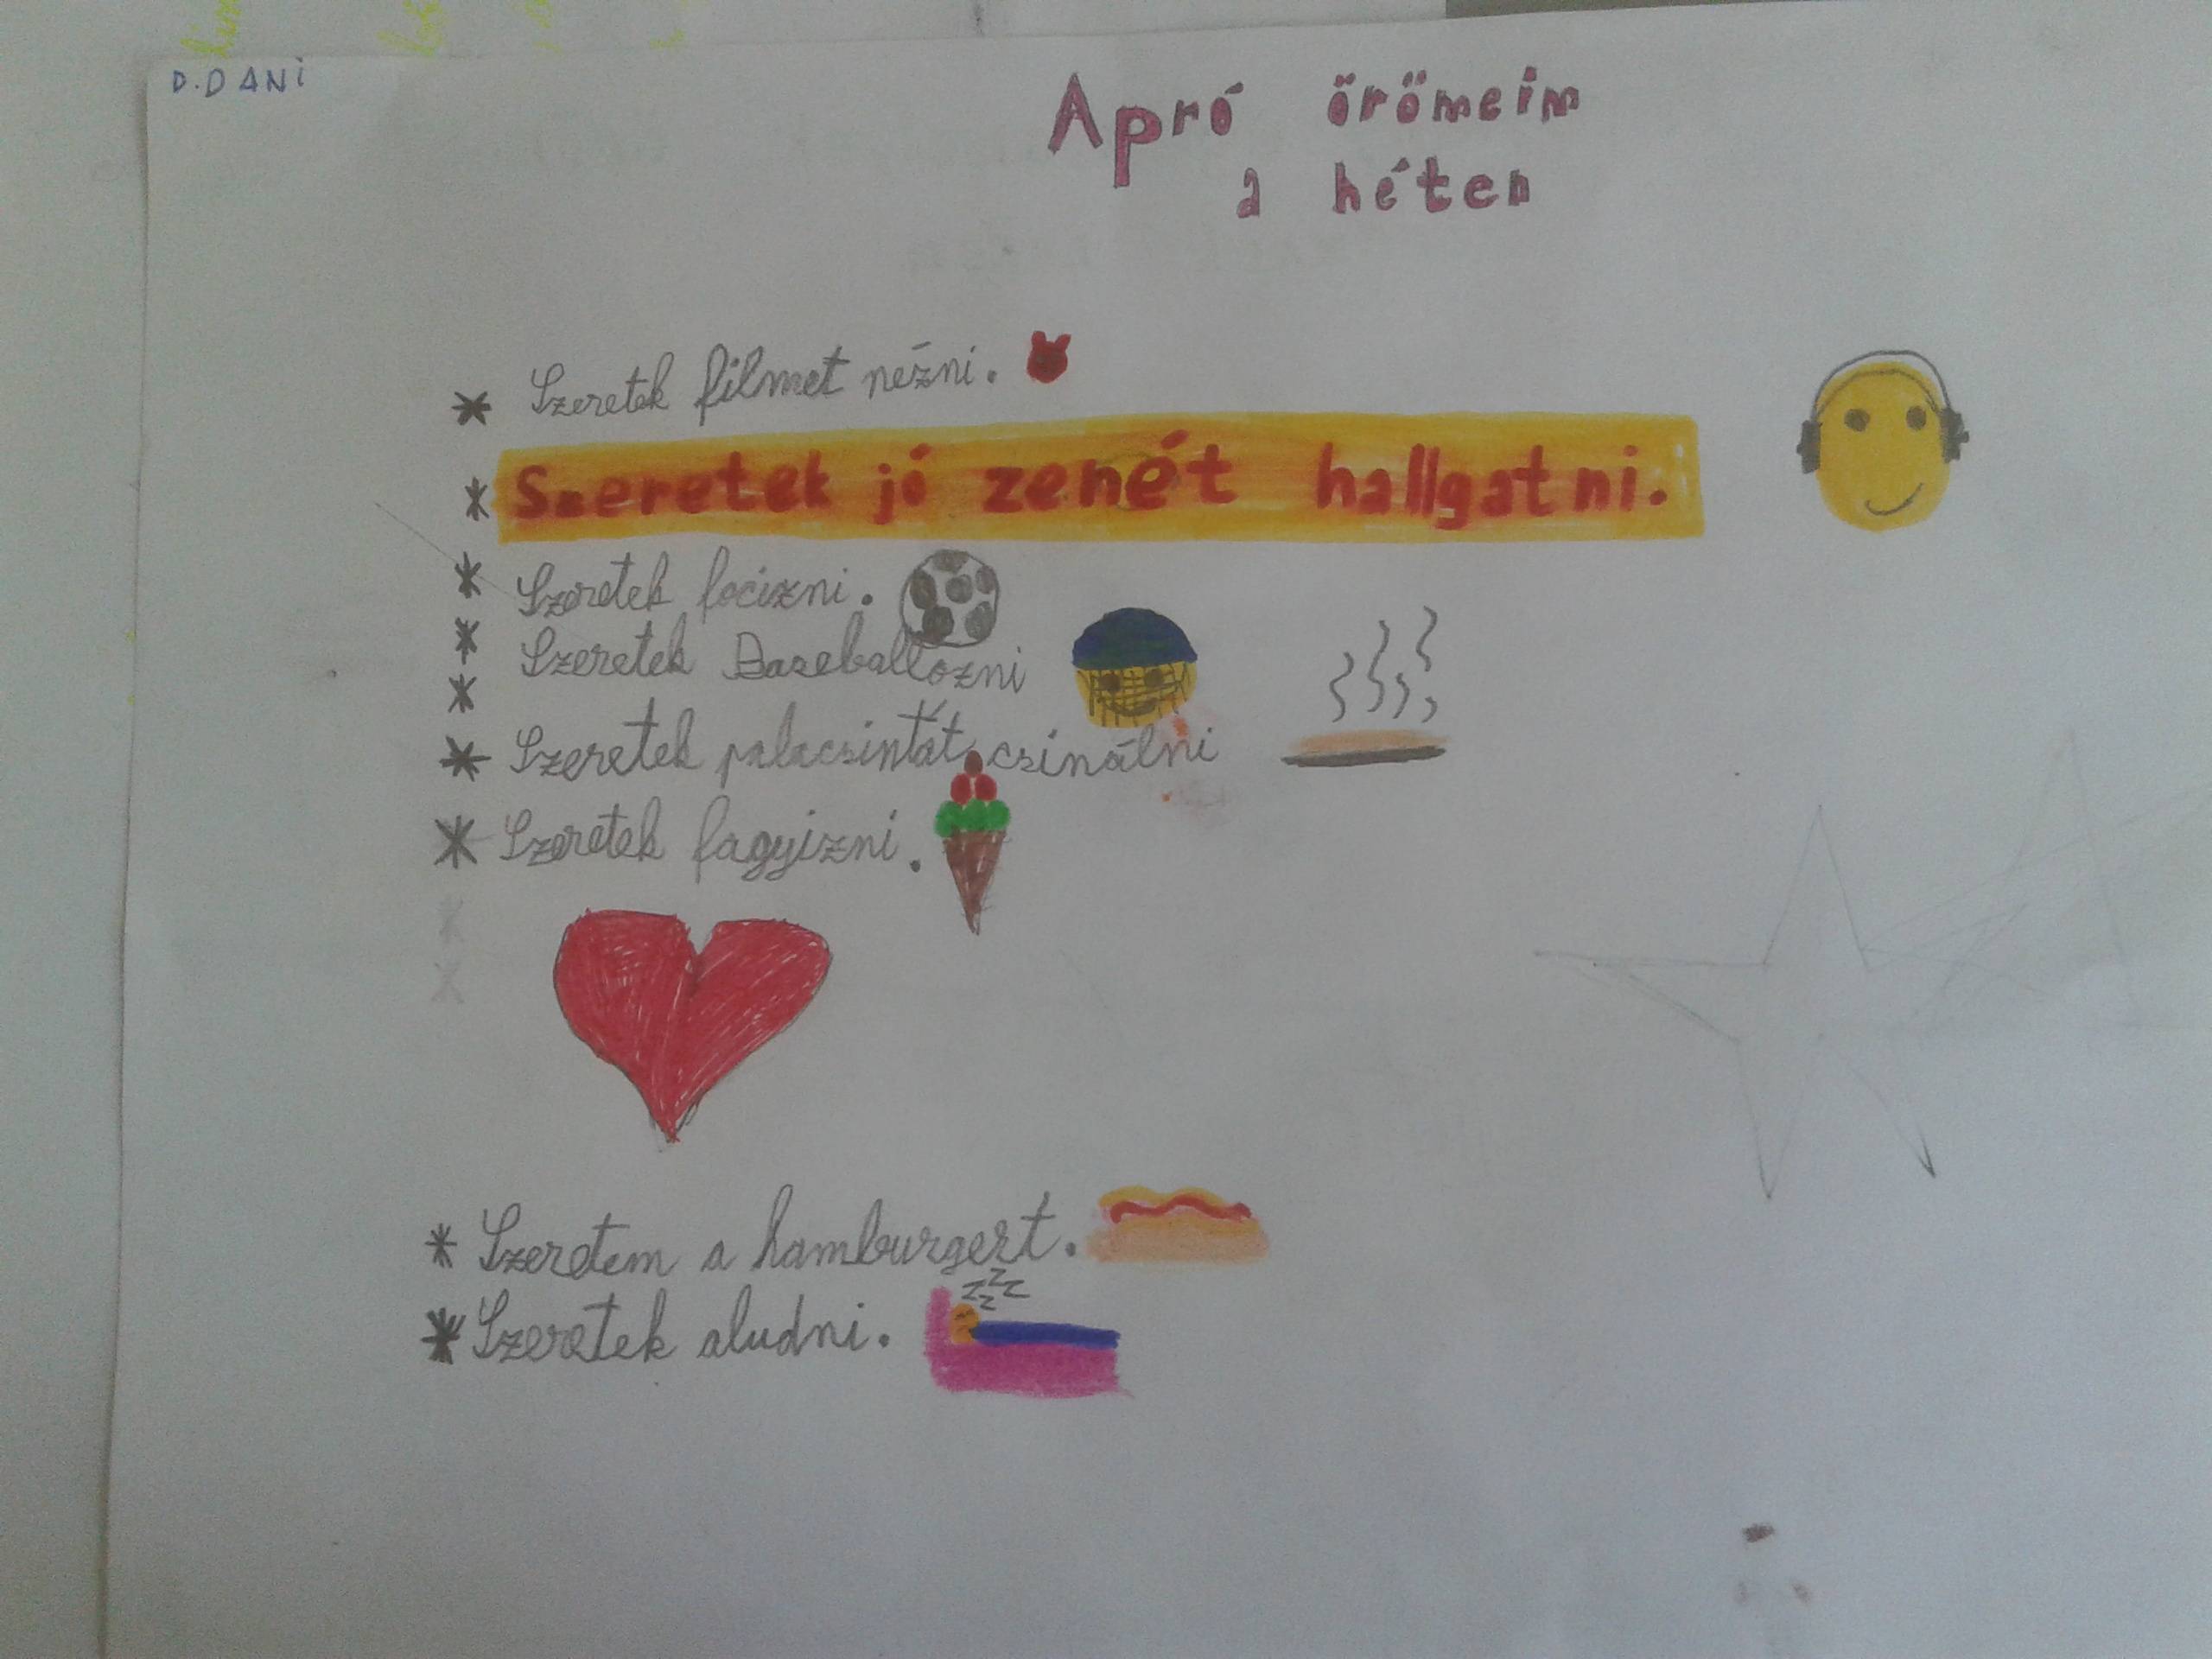 D.DANi
Apró őrőmeim
a héten
* Szeretek filmet nézni.
* Szeretek jó zenét hallgatni.
* Szeretek focizni.
* Szeretek Baseballozni
*
* Szeretek palacsintát csinálni
* Szeretek fagyizni.
* Szeretem a hamburgert.
zzzzz
* Szeretek aludni.